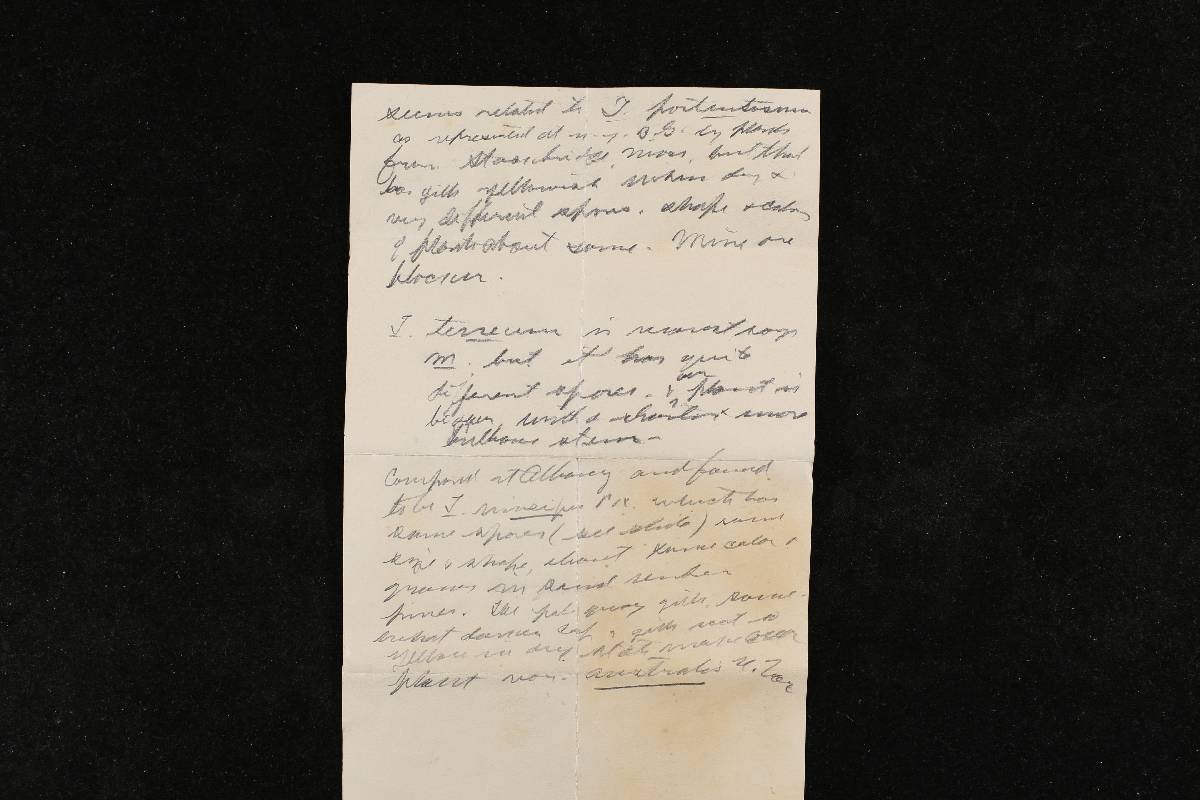 seems related to T. portentosum
as represented at N.Y. B.G. by plants
from Stockbridge, Mass, but that
has gills yellowish when dry &
very different spores. shape & color
of plants about same. Mine are
blacker.
T. terreum is nearest says
M. but it has quite
different spores. & our plant is
bigger, with a shorter & more
bulbous stem -
Compared at Albany and found
to be T. Pk. which has
same spores (see slide) same
size & shape, about same color &
grows in sand under
pines. The pale gray gills, some-
what darker cap, & gills not so
yellow in dry state make our
plant var. australis n. var